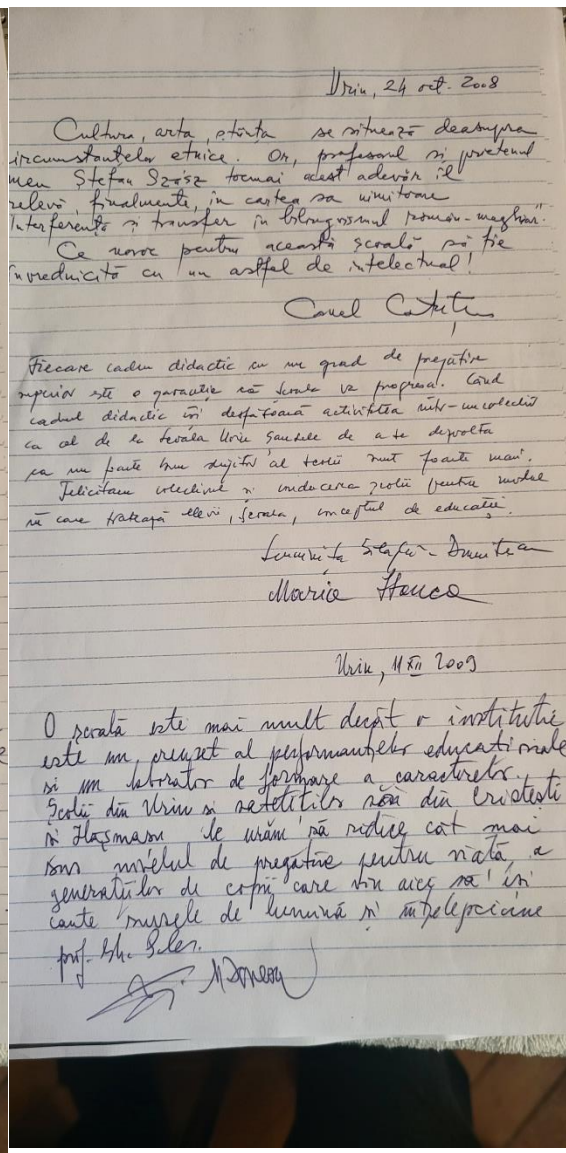 Uriu, 24 oct. 2008
Cultura, arta, știința se situează deasupra
ircumstanțelor etnice. Or, profesorul și prietenul
meu Ștefan Szász tocmai acest adevăr îl
relevă, finalmente, în cartea sa uimitoare
"Interferență și transfer în bilingvismul român-maghiar".
Ce noroc pentru această școală să fie
învrednicită cu un astfel de intelectual!
Cornel
Fiecare cadru didactic cu un grad de pregătire
superior este o garanție că școala va progresa. Când
cadrul didactic își desfășoară activitatea într-un colectiv
ca cel de la Școala Uriu șansele de a se dezvolta
ca un foarte bun slujitor al școlii sunt foarte mari.
Felicităm colectivul și conducerea școlii pentru modul
în care tratează elevii, școala, conceptul de educație.
Dumitrean
Maria
Uriu, 11 XII 2009
O școală este mai mult decât o instituție
este un creuzet al performanțelor educaționale
și un laborator de formare a caracterelor.
Școlii din Uriu și sateliților săi din Cristești
și Hășmașu le urăm să ridice cât mai
sus nivelul de pregătire pentru viață, a
generațiilor de copii care vin aici să își
caute sursele de lumină și înțelepciune
prof. Gh.